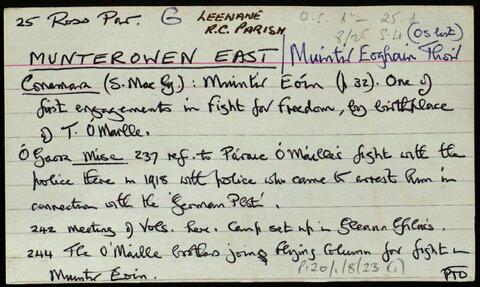 25 Ross Par. G LEENANE R.C. PARISH O.S. 6" - 25.4
8/25 S.4 (OS list)
MUNTEROWEN EAST / Muintir Eoghain Thoir
Conamara (S. Mac Gy.) : Muintir Eóin (p 32). One of
first engagements in Fight for Freedom, by birthplace
of T. O'Maille.
Ó Gaora Mise 237 ref. to Páraic Ó Máille's fight with the
police there in 1918 with police who came to arrest him in
connection with the 'German Plot'.
242 meeting of Vols. here. Camp set up in Gleann Ghlais.
244 The O'Maille brothers joing Flying Column for fight in
Muintir Eoin.
P120/1/8/23 (i)
PTO